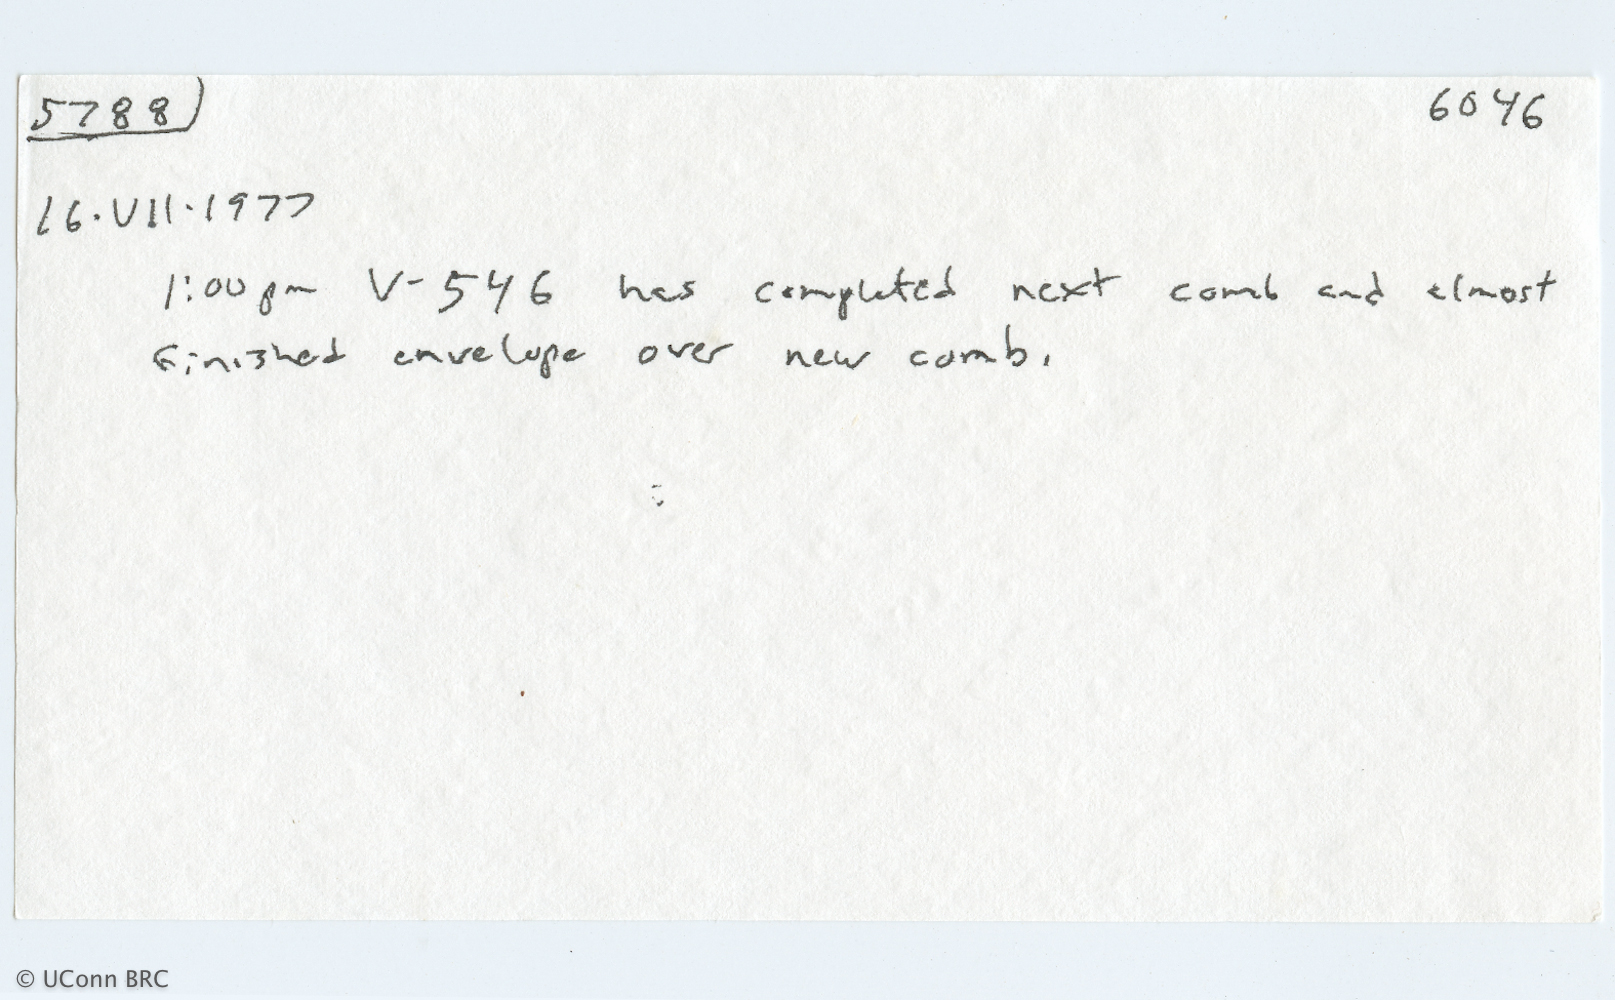 5788 6046
16.VII.1977
1:00pm V-546 has completed next comb and almost
finished envelope over new comb.
© UConn BRC